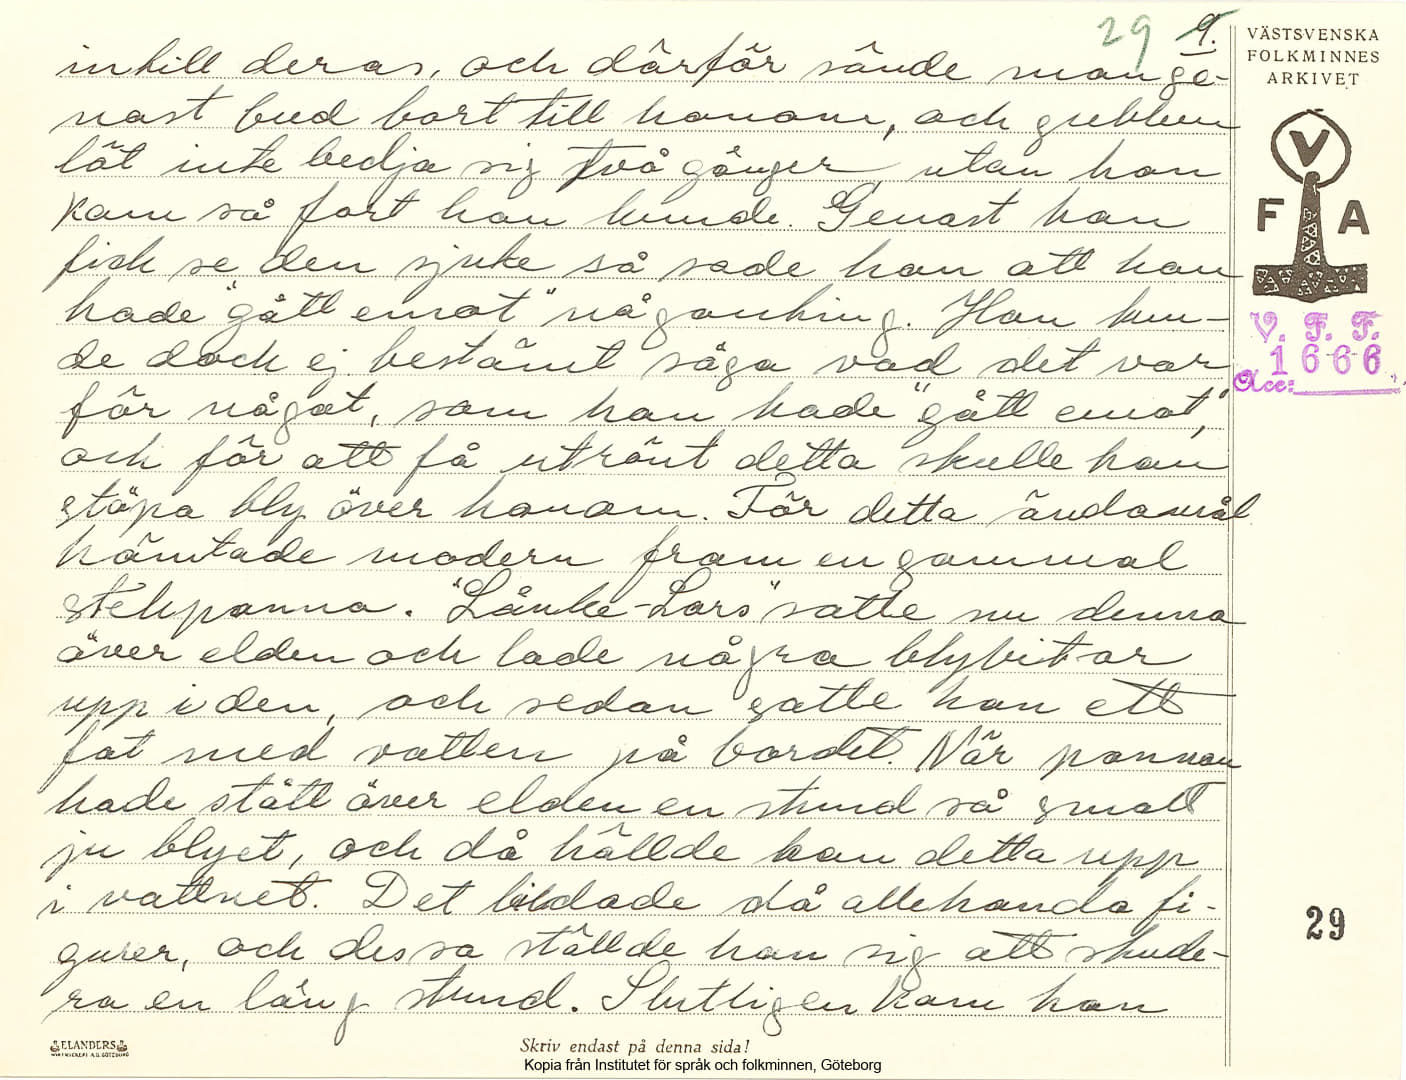 29 9.
VÄSTSVENSKA
FOLKMINNES
ARKIVET
V
F A
V. F. F.
1666
Acc:
intill deras, och därför sände man ge-
nast bud bort till honom, och gubben
lät inte bedja sig två gånger utan han
kom så fort han kunde. Genast han
fick se den sjuke så sade han att han
hade "gått emot" någonting. Han kun-
de dock ej bestämt säga vad det var
för något, som han hade "gått emot,"
och för att få utrönt detta skulle han
stöpa bly över honom. För detta ändamål
hämtade modern fram en gammal
stekpanna. "Lånke-Lars" satte nu denna
över elden och lade några blybitar
upp i den, och sedan satte han ett
fat med vatten på bordet. När pannan
hade stått över elden en stund så smalt
ju blyet, och då hällde han detta upp
i vattnet. Det bildade då allehanda fi-
gurer, och dessa ställde han sig att stude-
ra en lång stund. Slutligen kom han
29
ELANDERS
Skriv endast på denna sida!
Kopia från Institutet för språk och folkminnen, Göteborg